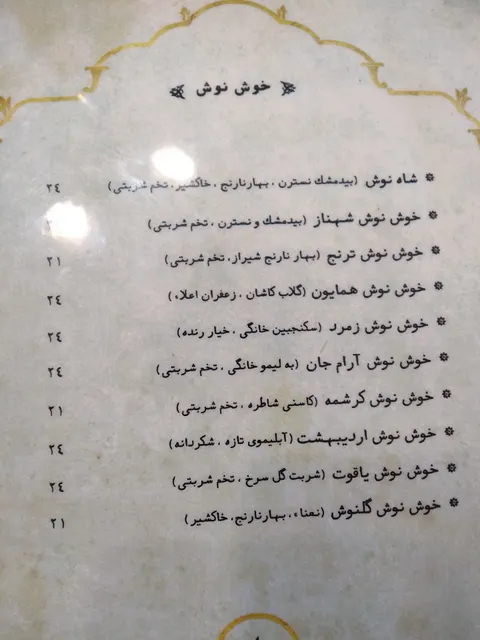 خوش نوش
شاه نوش (بیدمشك نسترن ، بهارنارنج ، خاکشیر ، تخم شربتی) ۲٤
خوش نوش شهناز (بیدمشك و نسترن ، تخم شربتی)
خوش نوش ترنج (بهار نارنج شیراز، تخم شربتی) ۲۱
خوش نوش همایون (گلاب کاشان ، زعفران اعلاء) ۲٤
خوش نوش زمرد (سکنجبین خانگی ، خیار رنده) ۲٤
خوش نوش آرام جان (به لیمو خانگی ، تخم شربتی) ۲٤
خوش نوش کرشمه (کاسنی شاطره ، تخم شربتی) ۲۱
خوش نوش اردیبهشت (آبلیموی تازه ، شکردانه) ۲٤
خوش نوش یاقوت (شربت گل سرخ ، تخم شربتی) ۲٤
خوش نوش گلنوش (نعناء، بهارنارنج، خاکشیر) ۲۱